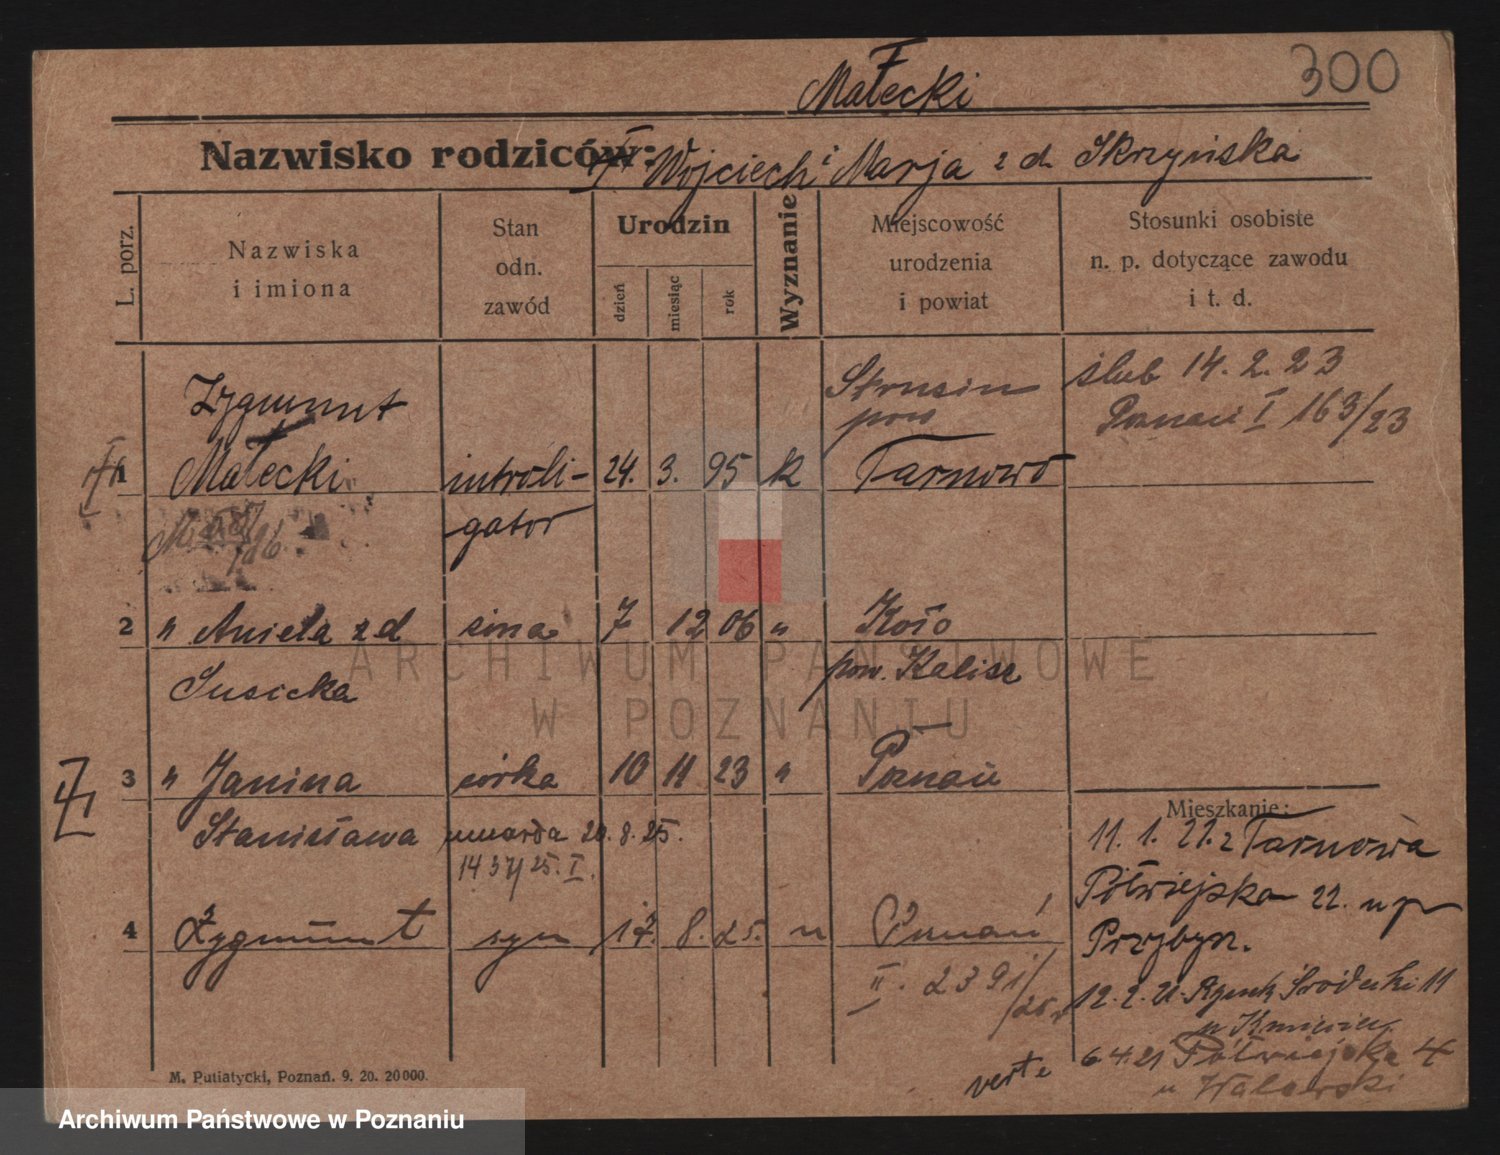 Małecki
300
Nazwisko rodziców: Wojciech i Marja z d. Skrzyńska
L. porz.
Nazwiska
i imiona
Stan
odn.
zawód
Urodzin
dzień
miesiąc
rok
Wyznanie
Miejscowość
urodzenia
i powiat
Stosunki osobiste
n. p. dotyczące zawodu
i t. d.
Zygmunt
pow
ślub 14. 2. 23
Poznań I 163/23
1 Małecki introli- 24. 3. 95 k Tarnowo
gator
2 " Aniela z d żona 7 12 06 " Koło
Susicka pow. Kalisz
3 " Janina córka 10 11 23 " Poznań
Stanisława umarła 20. 8. 25.
1437/25. I.
4 Zygmunt syn 17. 8. 25. " Poznań
II. 2391/25
Mieszkanie:
11. 1. 21. z Tarnowa
Półwiejska 22. u p
Przybysz.
12. 2. 21. Rynek Śródecki 11
6.4.21 Półwiejska 4
u Walewski
verte
M. Putiatycki, Poznań. 9. 20. 20000.
ARCHIWUM PAŃSTWOWE
W POZNANIU
Archiwum Państwowe w Poznaniu